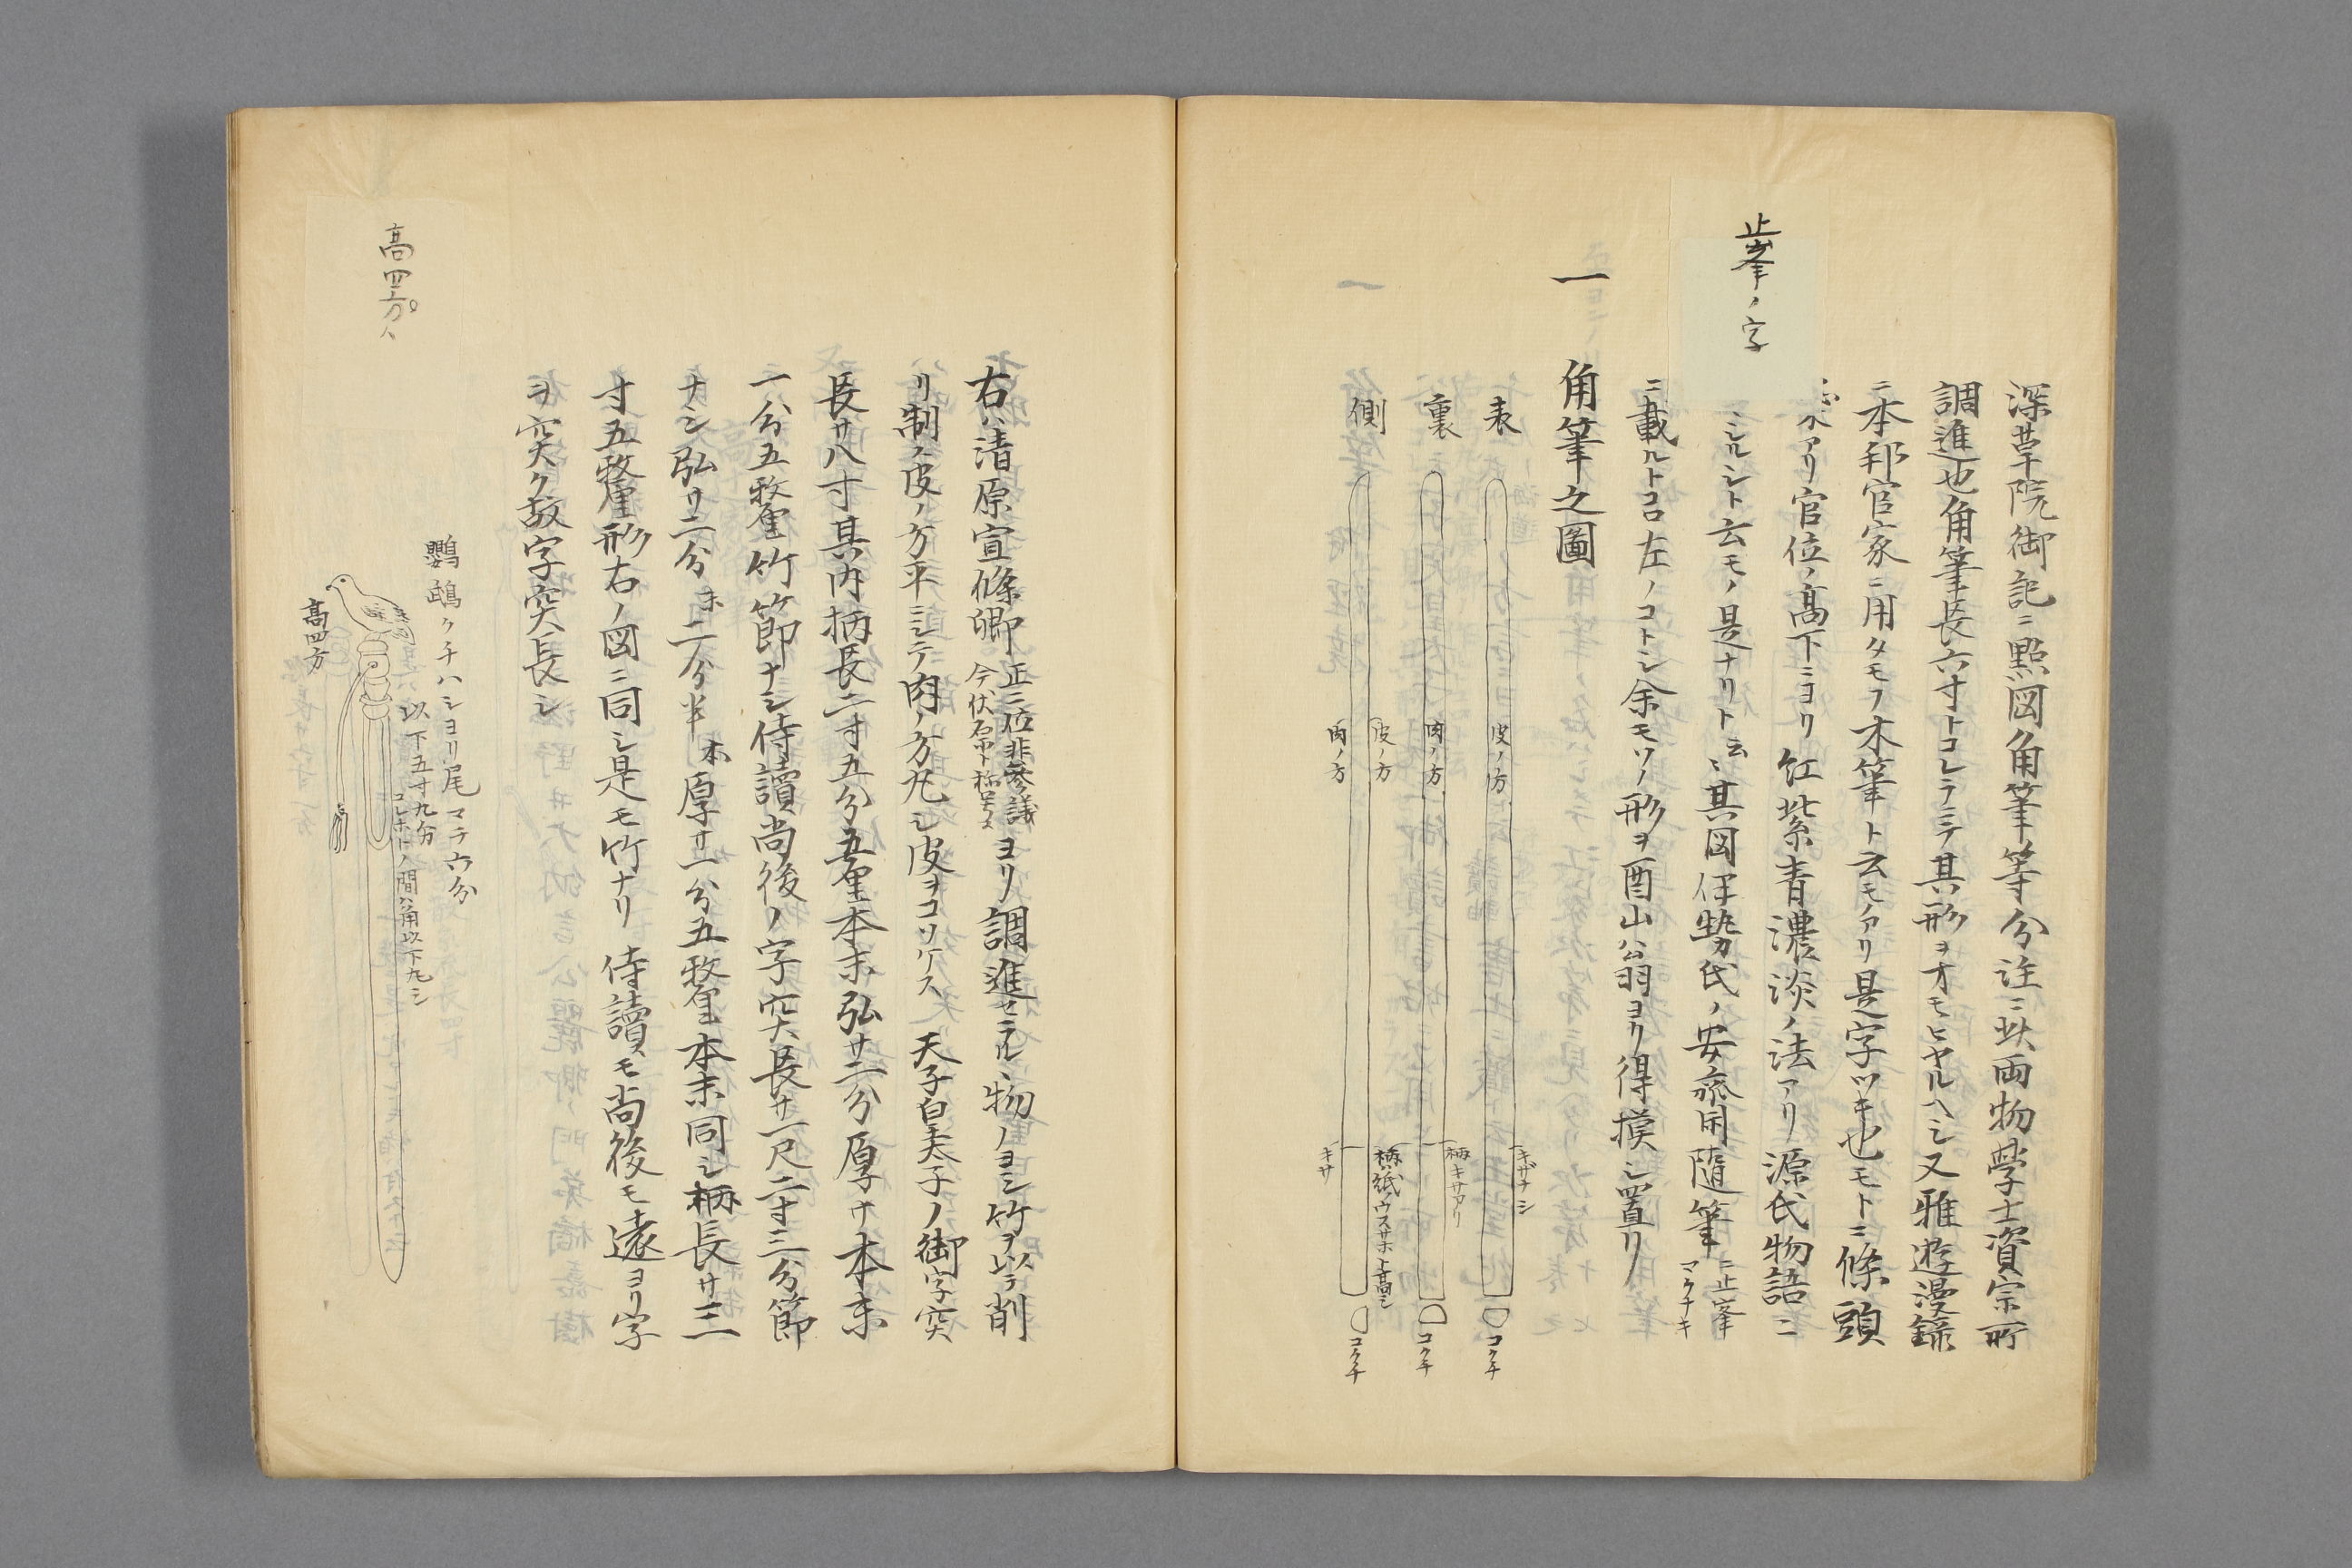 止峯ノ字
深草院御記ニ點図角筆等分註ニ此両物學士資宗所
調進也角筆長六寸トコレラニテ其形ヲオモヒヤルヘシ又雅遊漫録
ニ本邦官家ニ用タモフ木筆ト云モノアリ是字ツキ也モトニ絛頭
アリ官位ノ高下ニヨリ紅紫青濃淡ノ法アリ源氏物語ニ
ミルシト云モノ是ナリト云々其図伊勢氏ノ安斎閑随筆
ニ止峯
マクナキ
ニ載ルトコロ左ノコトシ余モソノ形ヲ酉山公羽ヨリ得摸シ置リ
一
角筆之圖
表
皮ノ方
キザナシ
コクチ
裏
肉ノ方
柄キサアリ
コクチ
側
皮ノ方
肉ノ方
キサ
コクチ
右ハ清原宣條卿
正二位非参議
今伏原ト称号ス
ヨリ調進セラルヽ物ノヨシ竹ヲ以テ削
リ制ス皮ノ方平ミシテ肉ノ方丸シ皮ヲコソケス 天子皇太子ノ御字突
長サ八寸其内柄長二寸五分五厘本末弘サ二分厚サ本末
一分五釐竹節ナシ侍讀尚後ノ字突長サ一尺二寸三分節
ナシ弘サ二分末二分半本厚サ一分五釐本末同シ柄長サ三
寸五釐形右ノ図ニ同シ是モ竹ナリ 侍讀モ尚後モ遠ヨリ字
ヲ突ク故字突長シ
高四方ハ
鸚鵡クチハシヨリ尾マテ六分
以下五寸九分
コレホトノ間ハ角以下九シ
高四方